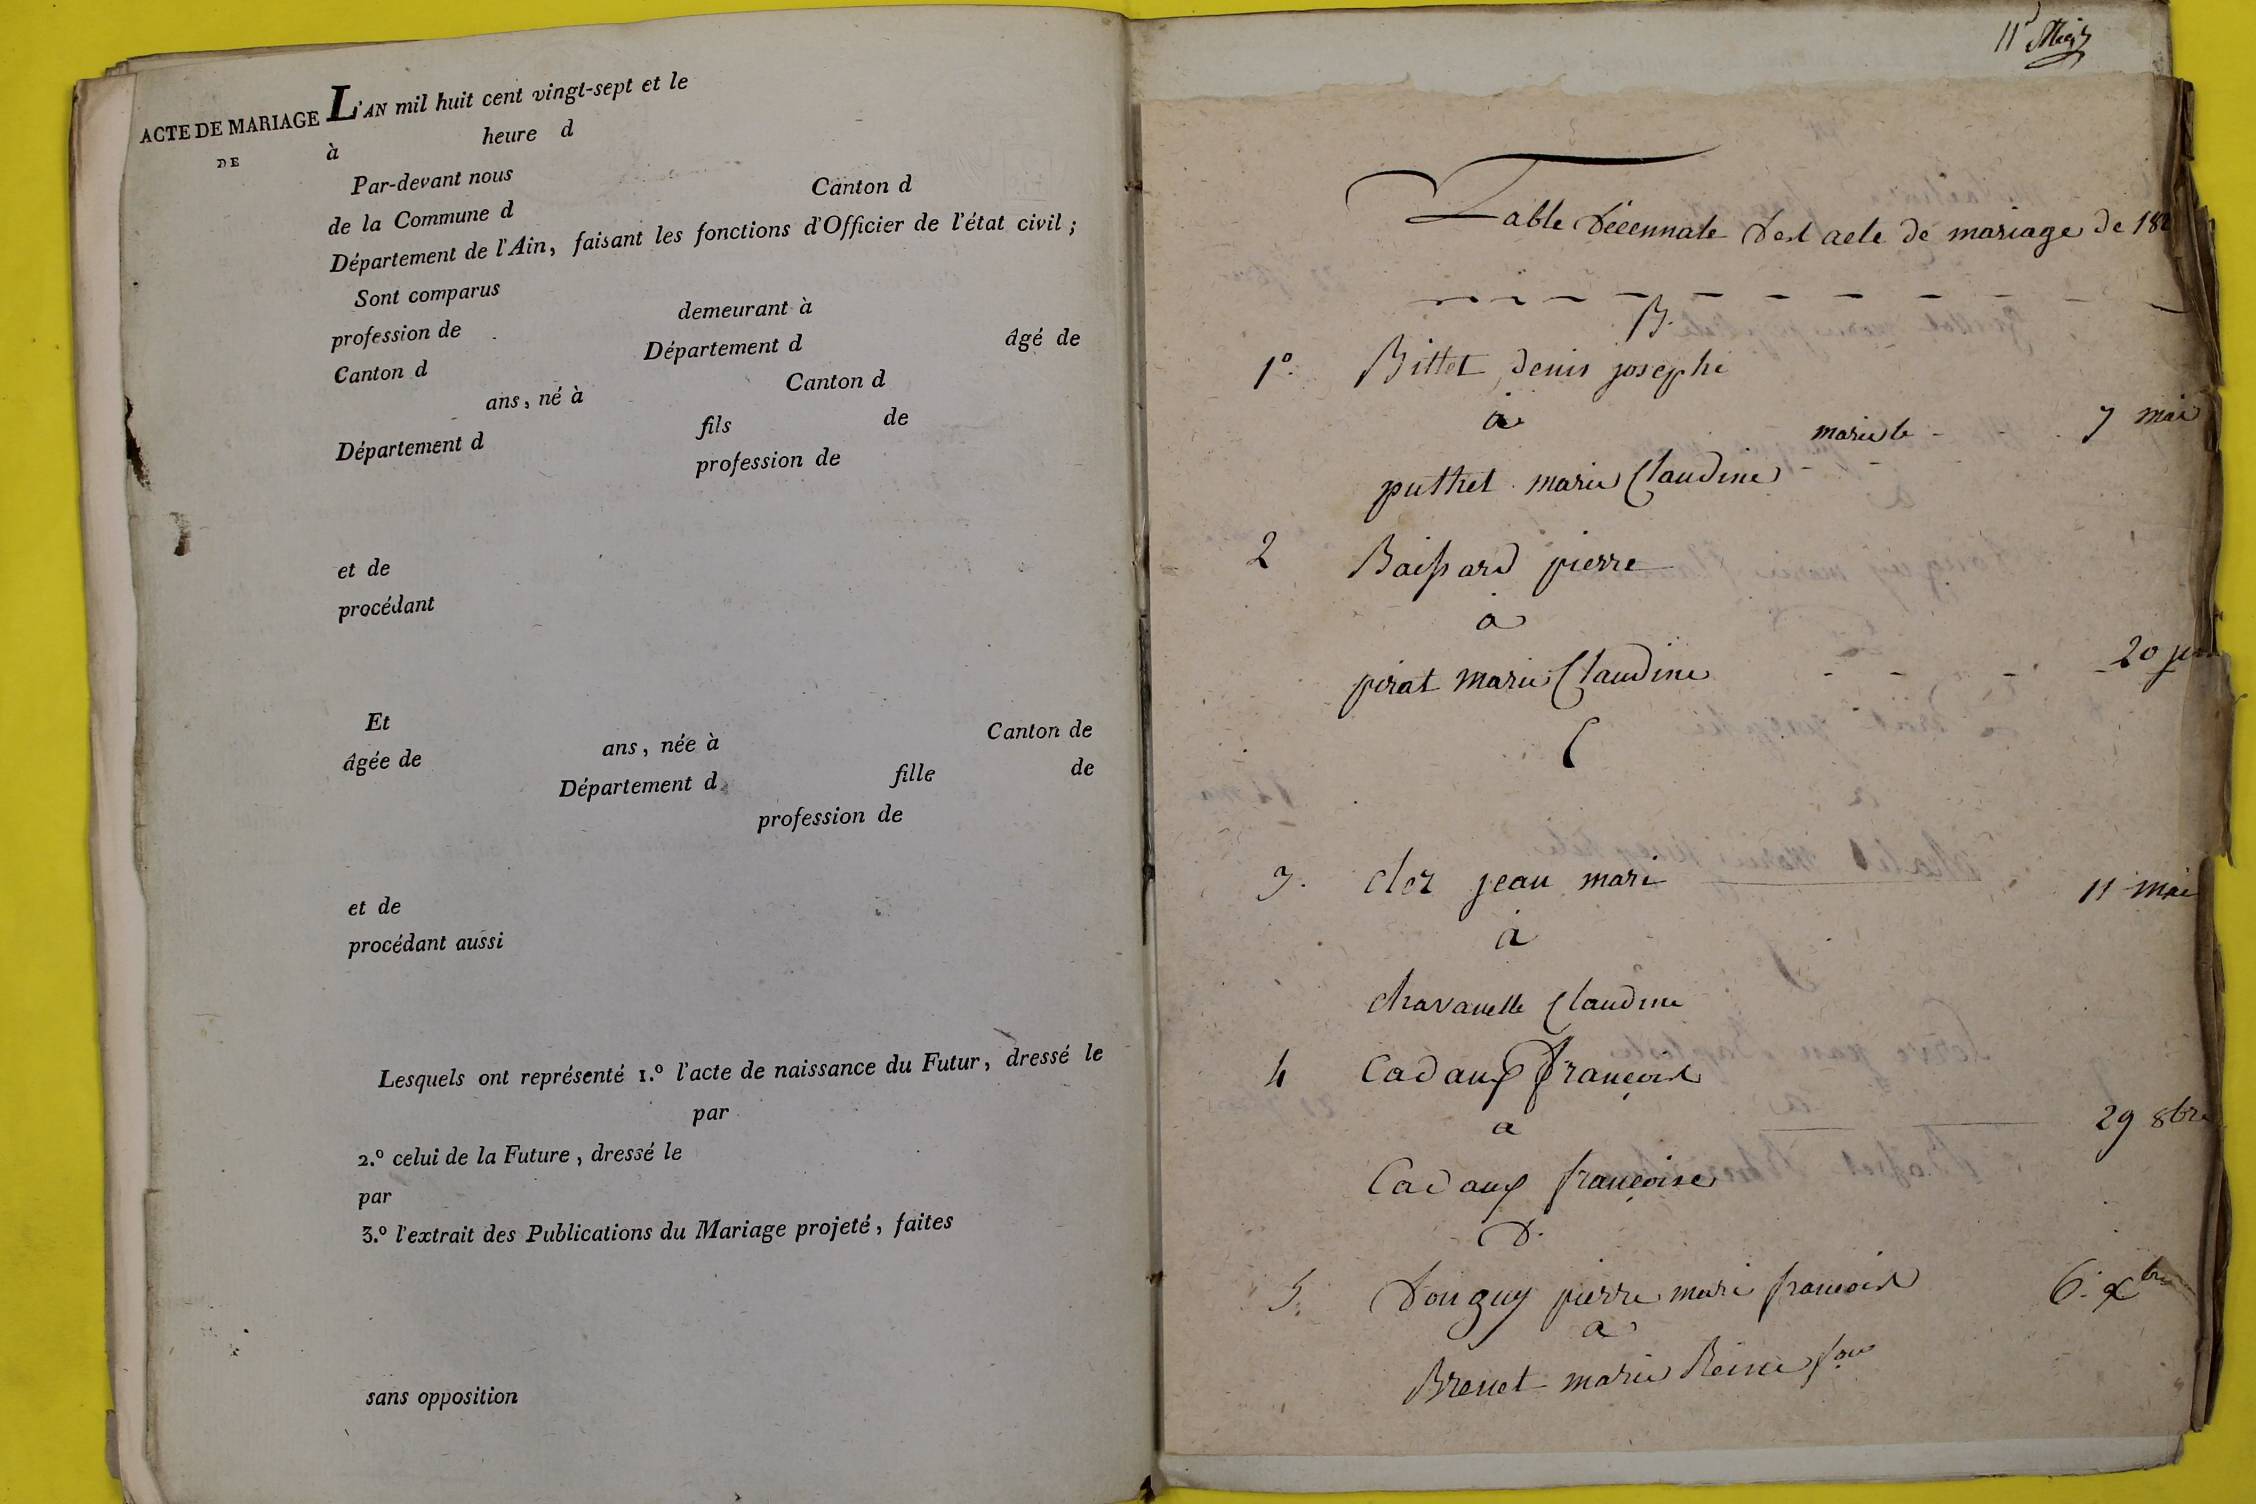 ACTE DE MARIAGE
DE
L'AN mil huit cent vingt-sept et le
à heure d
Par-devant nous
de la Commune d Canton d
Département de l'Ain, faisant les fonctions d'Officier de l'état civil ;
Sont comparus
profession de demeurant à
Canton d Département d âgé de
ans, né à Canton d
Département d fils de
profession de
et de
procédant
Et
âgée de ans, née à Canton de
Département d fille de
profession de
et de
procédant aussi
Lesquels ont représenté 1.º l'acte de naissance du Futur, dressé le
par
2.º celui de la Future, dressé le
par
3.º l'extrait des Publications du Mariage projeté, faites
sans opposition
Table décennale des acte de mariage de 182
B.
1º. Billet denis josephe
à marie le 7 mai
puthet marie Claudine
2 Baissard pierre
à
pirat marie Claudine 20
C
3. clez jean mari 11 mai
à
chavanelle Claudine
4 Cadaux françois
a 29 8bre
Cadaux françoise
D.
5. Donguy pierre mari francois 6. Xbre
a
Brenet marie Reine